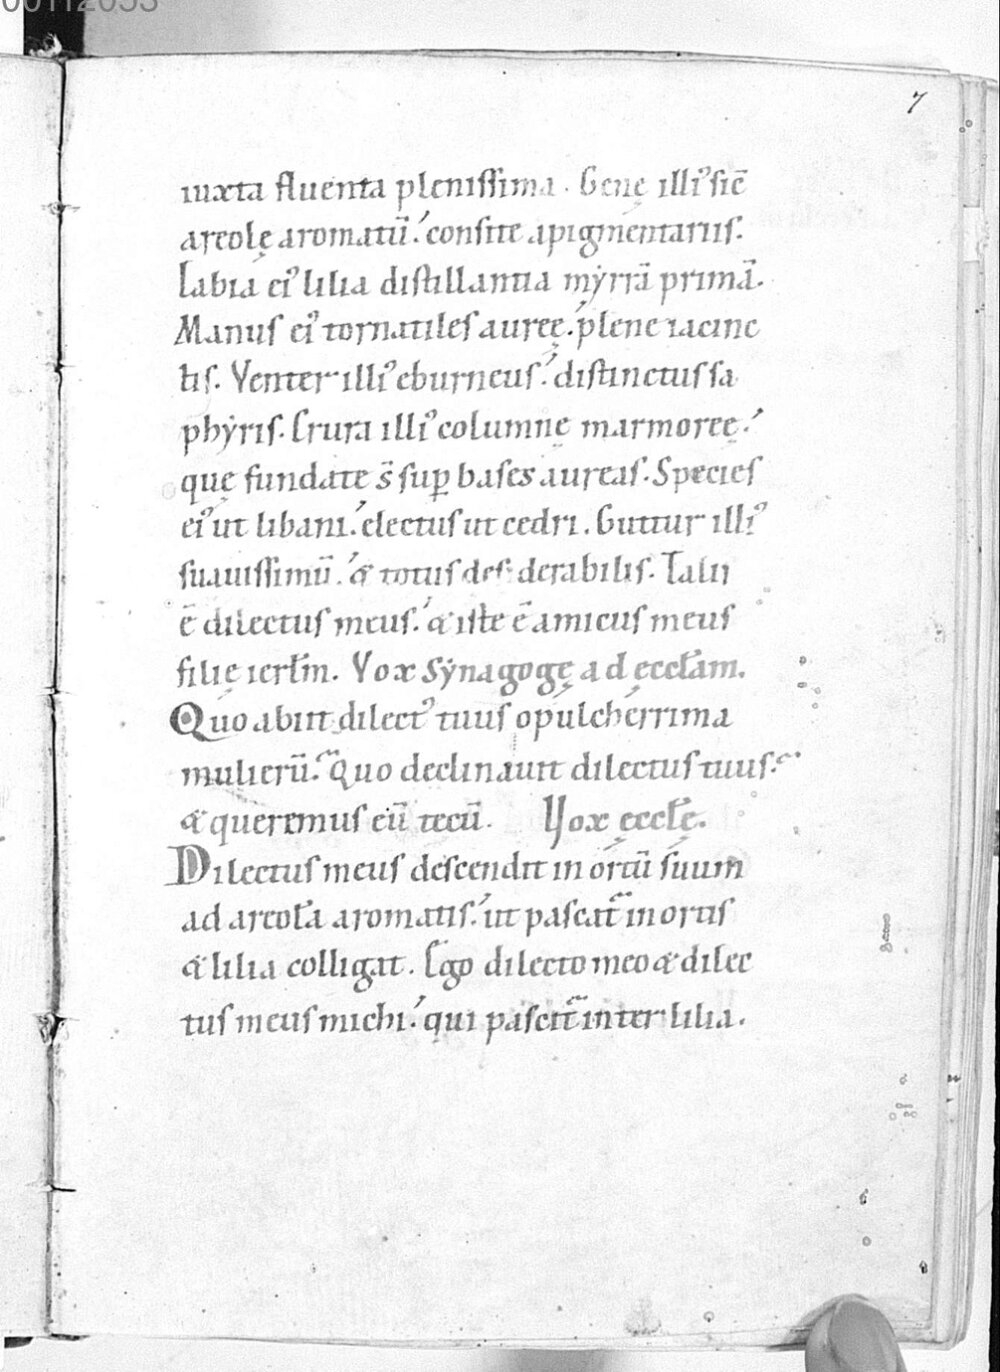 00112053
7
iuxta fluenta plenissima. Genę illiꝰ sic̄
areolę aromatū. consite apigmentariis.
Labia eiꝰ lilia distillantia myrrā primā.
Manus eiꝰ tornatiles aureę. plene iacinc
tis. Venter illiꝰ eburneus. distinctus sa
phyris. Crura illiꝰ columnę marmoreę.
quę fundate s̄ suꝑ bases aureas. Species
eiꝰ ut libani. electus ut cedri. Guttur illiꝰ
suauissimū. & totus desiderabilis. Talis
ē dilectus meus. & iste ē amicus meus
filię ierłm. Vox synagogę ad ęccłam.
Quo abiit dilectꝰ tuus o pulcherrima
mulierū. Quo declinauit dilectus tuus.
& queremus eū tecū. Vox ęccłę.
Dilectus meus descendit in ortū suum
ad areoła aromatis. ut pascat̃ in ortis
& lilia colligat. Ego dilecto meo & dilec
tus meus michi. qui pascit̃ inter lilia.